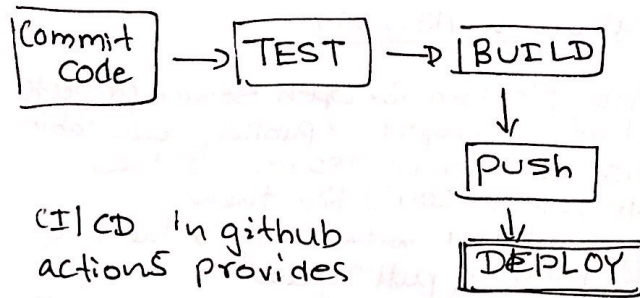 Commit
Code
TEST
BUILD
push
DEPLOY
CI/CD in github
actions provides